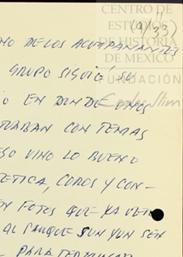 CENTRO DE
ESTUDIOS
DE HISTORIA
DE MÉXICO
(9/33)
FUNDACIÓN
NO MELOS ACOMPAÑANTES
GRUPO SIGUIÓ
O EN DONDE
URBAN CON TEMAS
ESO VINO LO BUENO
ETICA, COROS Y CON-
EN FOTOS QUE YA
AL PARQUE SUN YUN SON
PARA TERMINAR